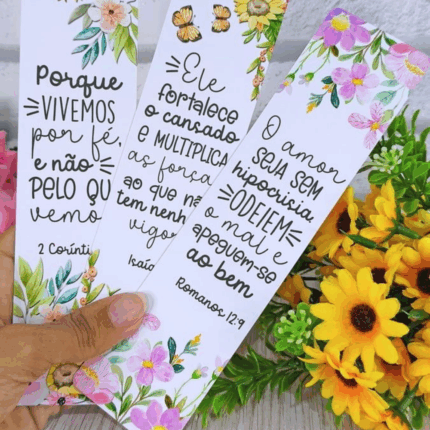 Porque
VIVEMOS
por fé,
e não
PELO QU
vemo
2 Corínti
Ele
fortalece
o cansado
E MULTIPLICA
as força
ao que nã
tem nenh
vigor
Isaía
O amor
SEJA SEM
hipocrisia
ODEIEM
o mal e
apeguem-se
ao bem
Romanos 12:9